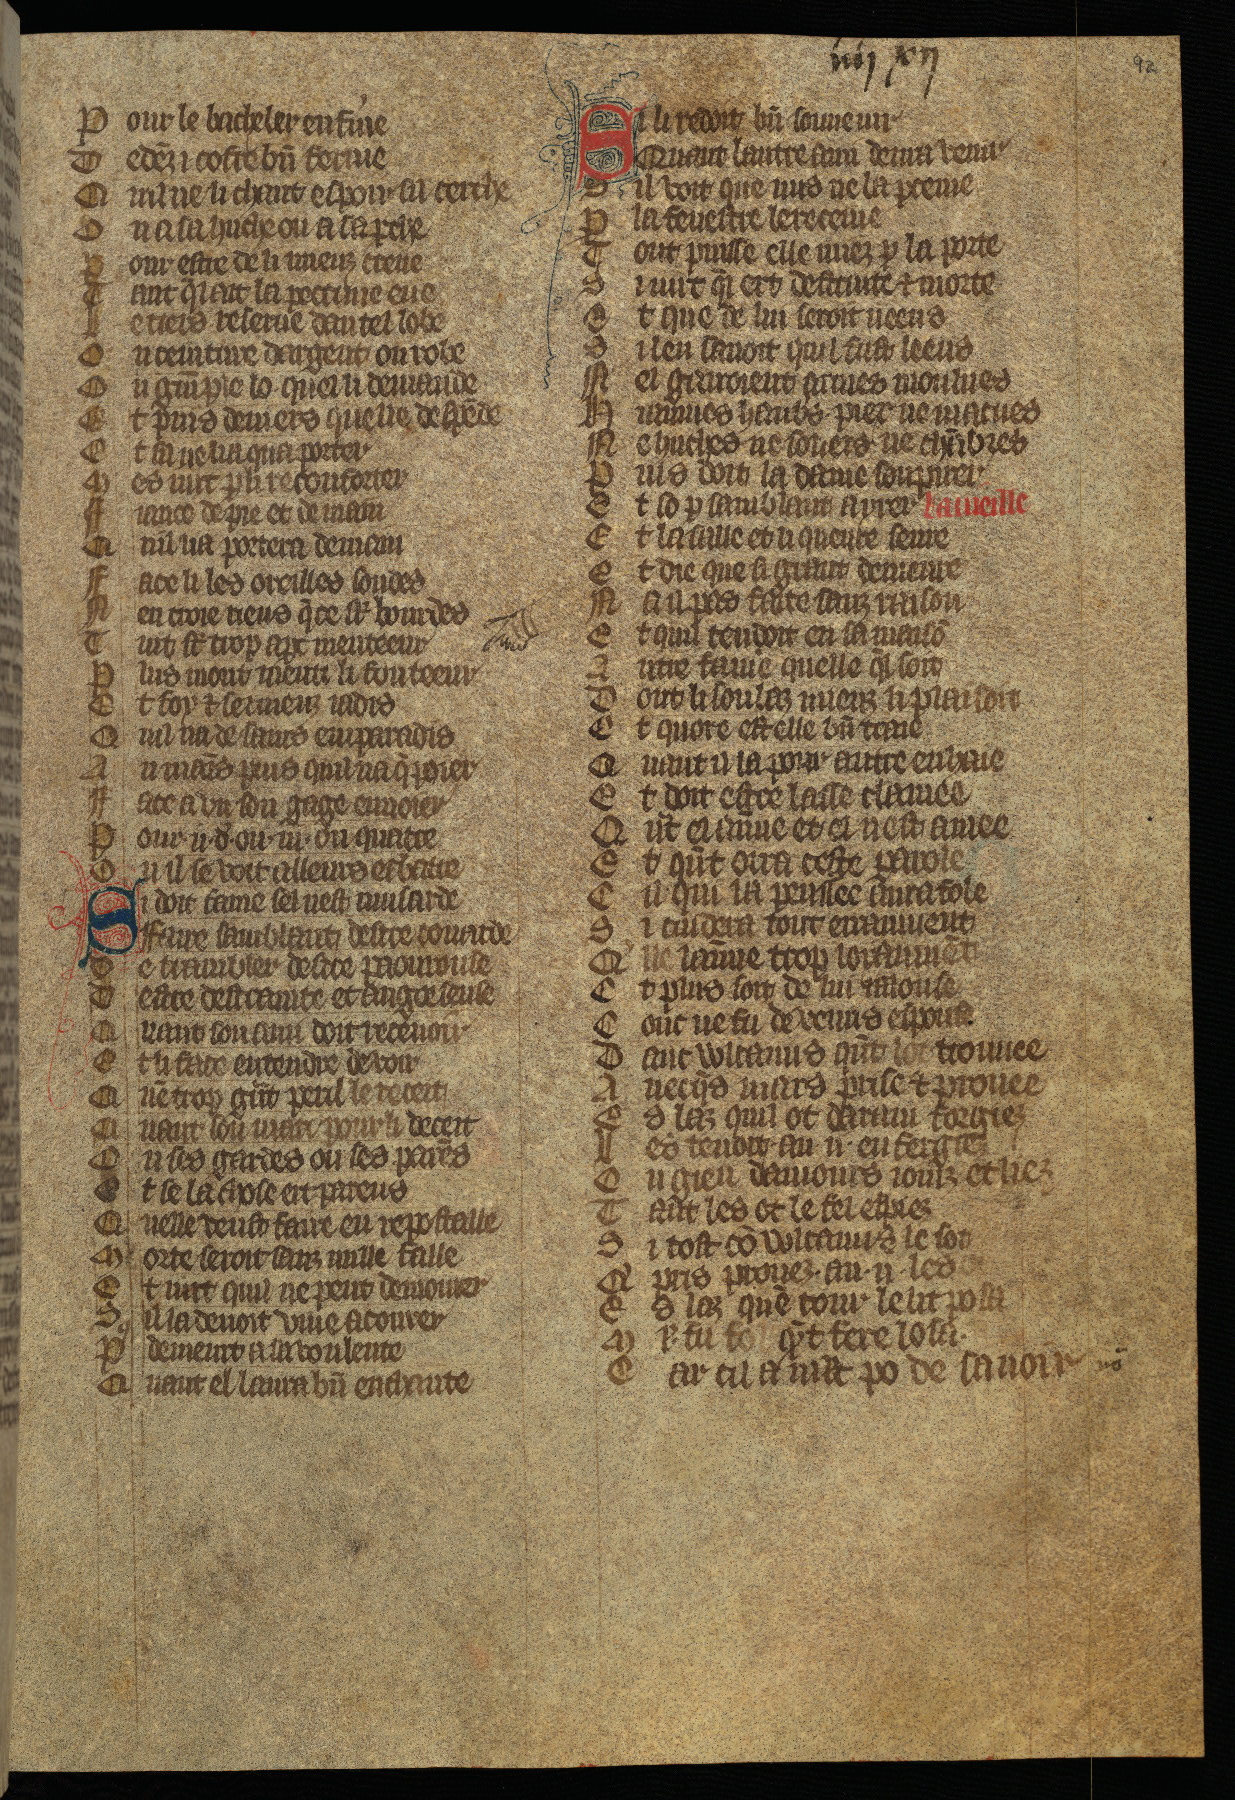 iiij xij
92
Pour le bacheler enfume
Tedez i coste bn ferme
Qui ne li chaut espoir sil cerche
On a sa huche ou a sa perche
Pour estre de li mieuz creue
Tant qil ait la peccune eue
Le tiers reserue dautel lobe
Ou ceinture dargent ou robe
Ou guimple lo quel li demande
Et puis deniers quelle despede
Et sil ne lia qua porter
Mes iurt p li reconforter
Fiance de pie et de main
Quil lia portera demain
Face li les oreilles sourdes
Nen croie riens qce st bourdes
Tuit st trop apt menteeur
Plus mont menti li fouteeur
Et foy & sermens iadis
Quil na de sains en paradis
Au mains puis quil na q poier
Face a vin son gage enuoier
Pour .ii. d. ou .iii. ou quatre
Ou il se voit ailleurs esbatre
Si doit fame sel nest musarde
Faire samblant destre couarde
De trambler destre paourouse
Destre destrainte et angoiseuse
Quant son ami doit receuoir
Et li face entendre de voir
Quen trop gnt peril le recoit
Quant son mari pour li decoit
Ou ses gardes ou ses parens
Et se la chose ert parens
Quelle veust faire en repostaille
Morte seroit sanz nulle faille
Et iurt quil ne peut demourer
Sil la deuoit viue acourer
Puis demeurt a sa voulente
Quant el laura bn enchante
Si li redoit bn souuenir
Quant lautre sam deura venir
Sil voit que nus ne la preme
Par la fenestre le receiue
Tout puisse elle miez p la porte
Si iurt ql ert destruite & morte
Et que de lui seroit neens
Si len sauoit quil fust leens
Nel garroient armes moulues
Hiaumes haubs pier ne macues
Ne huches ne souers ne chnbres
Puis doit la dame soupirer
Et so p samblant ayrer la uieille
Et lasaille et li queure seure
Et die que si grant demeure
Na il pas faite sanz raison
Et quil tendoit en sa maiso
Autre fame quelle ql soit
Dont li soulaz miez li plaisoit
Et quore est elle bn traie
Quant il la pour autre enhaie
Et doit estre lasse clamee
Qnt el aime et el nest amee
Et qnt orra ceste parole
Cil qui la pensee aura fole
Si cuidera tout erraument
Qlle laime trop loraument
Et plus soit de lui ialouse
Conc ne fu de venus espouse
Danc wlcanus qnt lot trouuee
Auecqs mars prise & prouee
Es laz quil ot darain forgiez
Les tendoit an .ii. en fergiez
Ou gieu damours ioinz et liez
Tant les ot le fel espiez
Si tost co wlcanus le sot
Q pris prouez an .ii. les ot
Es laz quen tour le lit posa
Car cil a mlt po de sauoir